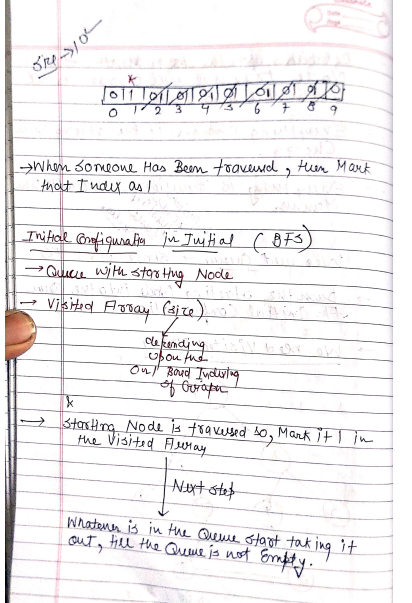 Size → 10
0 1 0 1 0 1 0 1 0 1 0 1 0 1 0 0
0 1 2 3 4 5 6 7 8 9
→ When Someone Has Been traversed, then Mark
that Index as 1
Initial Configuration in Initial (BFS)
→ Queue with starting Node
→ Visited Array (size)
depending
upon the
0/1 Based Indexing
of Graph
→ Starting Node is traversed so, Mark it 1 in
the Visited Array
Next step
Whatever is in the Queue start taking it
out, till the Queue is not Empty.